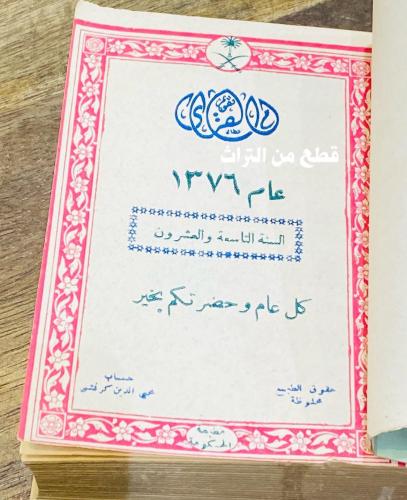 تقويم أم القرى
قطع من التراث
عام ١٣٧٦
السنة التاسعة والعشرون
كل عام وحضرتكم بخير
حقوق الطبع
محفوظة
حساب
محيي الدين كرفشى
مطبعة
الحكومة